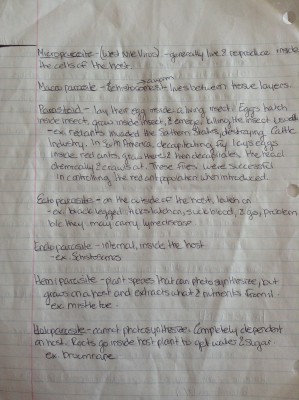 Microparasite - (West Nile Virus) - generally live & reproduce inside
the cells of the host.
Macroparasite - (Schistosomes) - lives between tissue layers.
Parasitoid - lay their egg inside a living insect. Eggs hatch
inside insect, grow inside insect, & emerge killing the insect
- ex. red ants invaded the Southern States, destroying Cattle
Industry. In South America, decapitating fly lays eggs
inside red ants, grow there & then decapitates the head
chemically & crawls out. These flies were successful
in controlling the red ant population when introduced.
Ectoparasites - on the outside of the host, feed on
- ex. black legged ticks, suck blood, & problem
b/c they may carry lyme disease
Endoparasite - internal, inside the host
- ex. Schistosomes
Hemiparasite - plant species that can photosynthesize, but
grows on a host and extracts water & nutrients from it.
- ex. mistletoe
Holoparasite - cannot photosynthesize. Completely dependent
on host. Roots go inside host plant to get water & sugar.
ex.